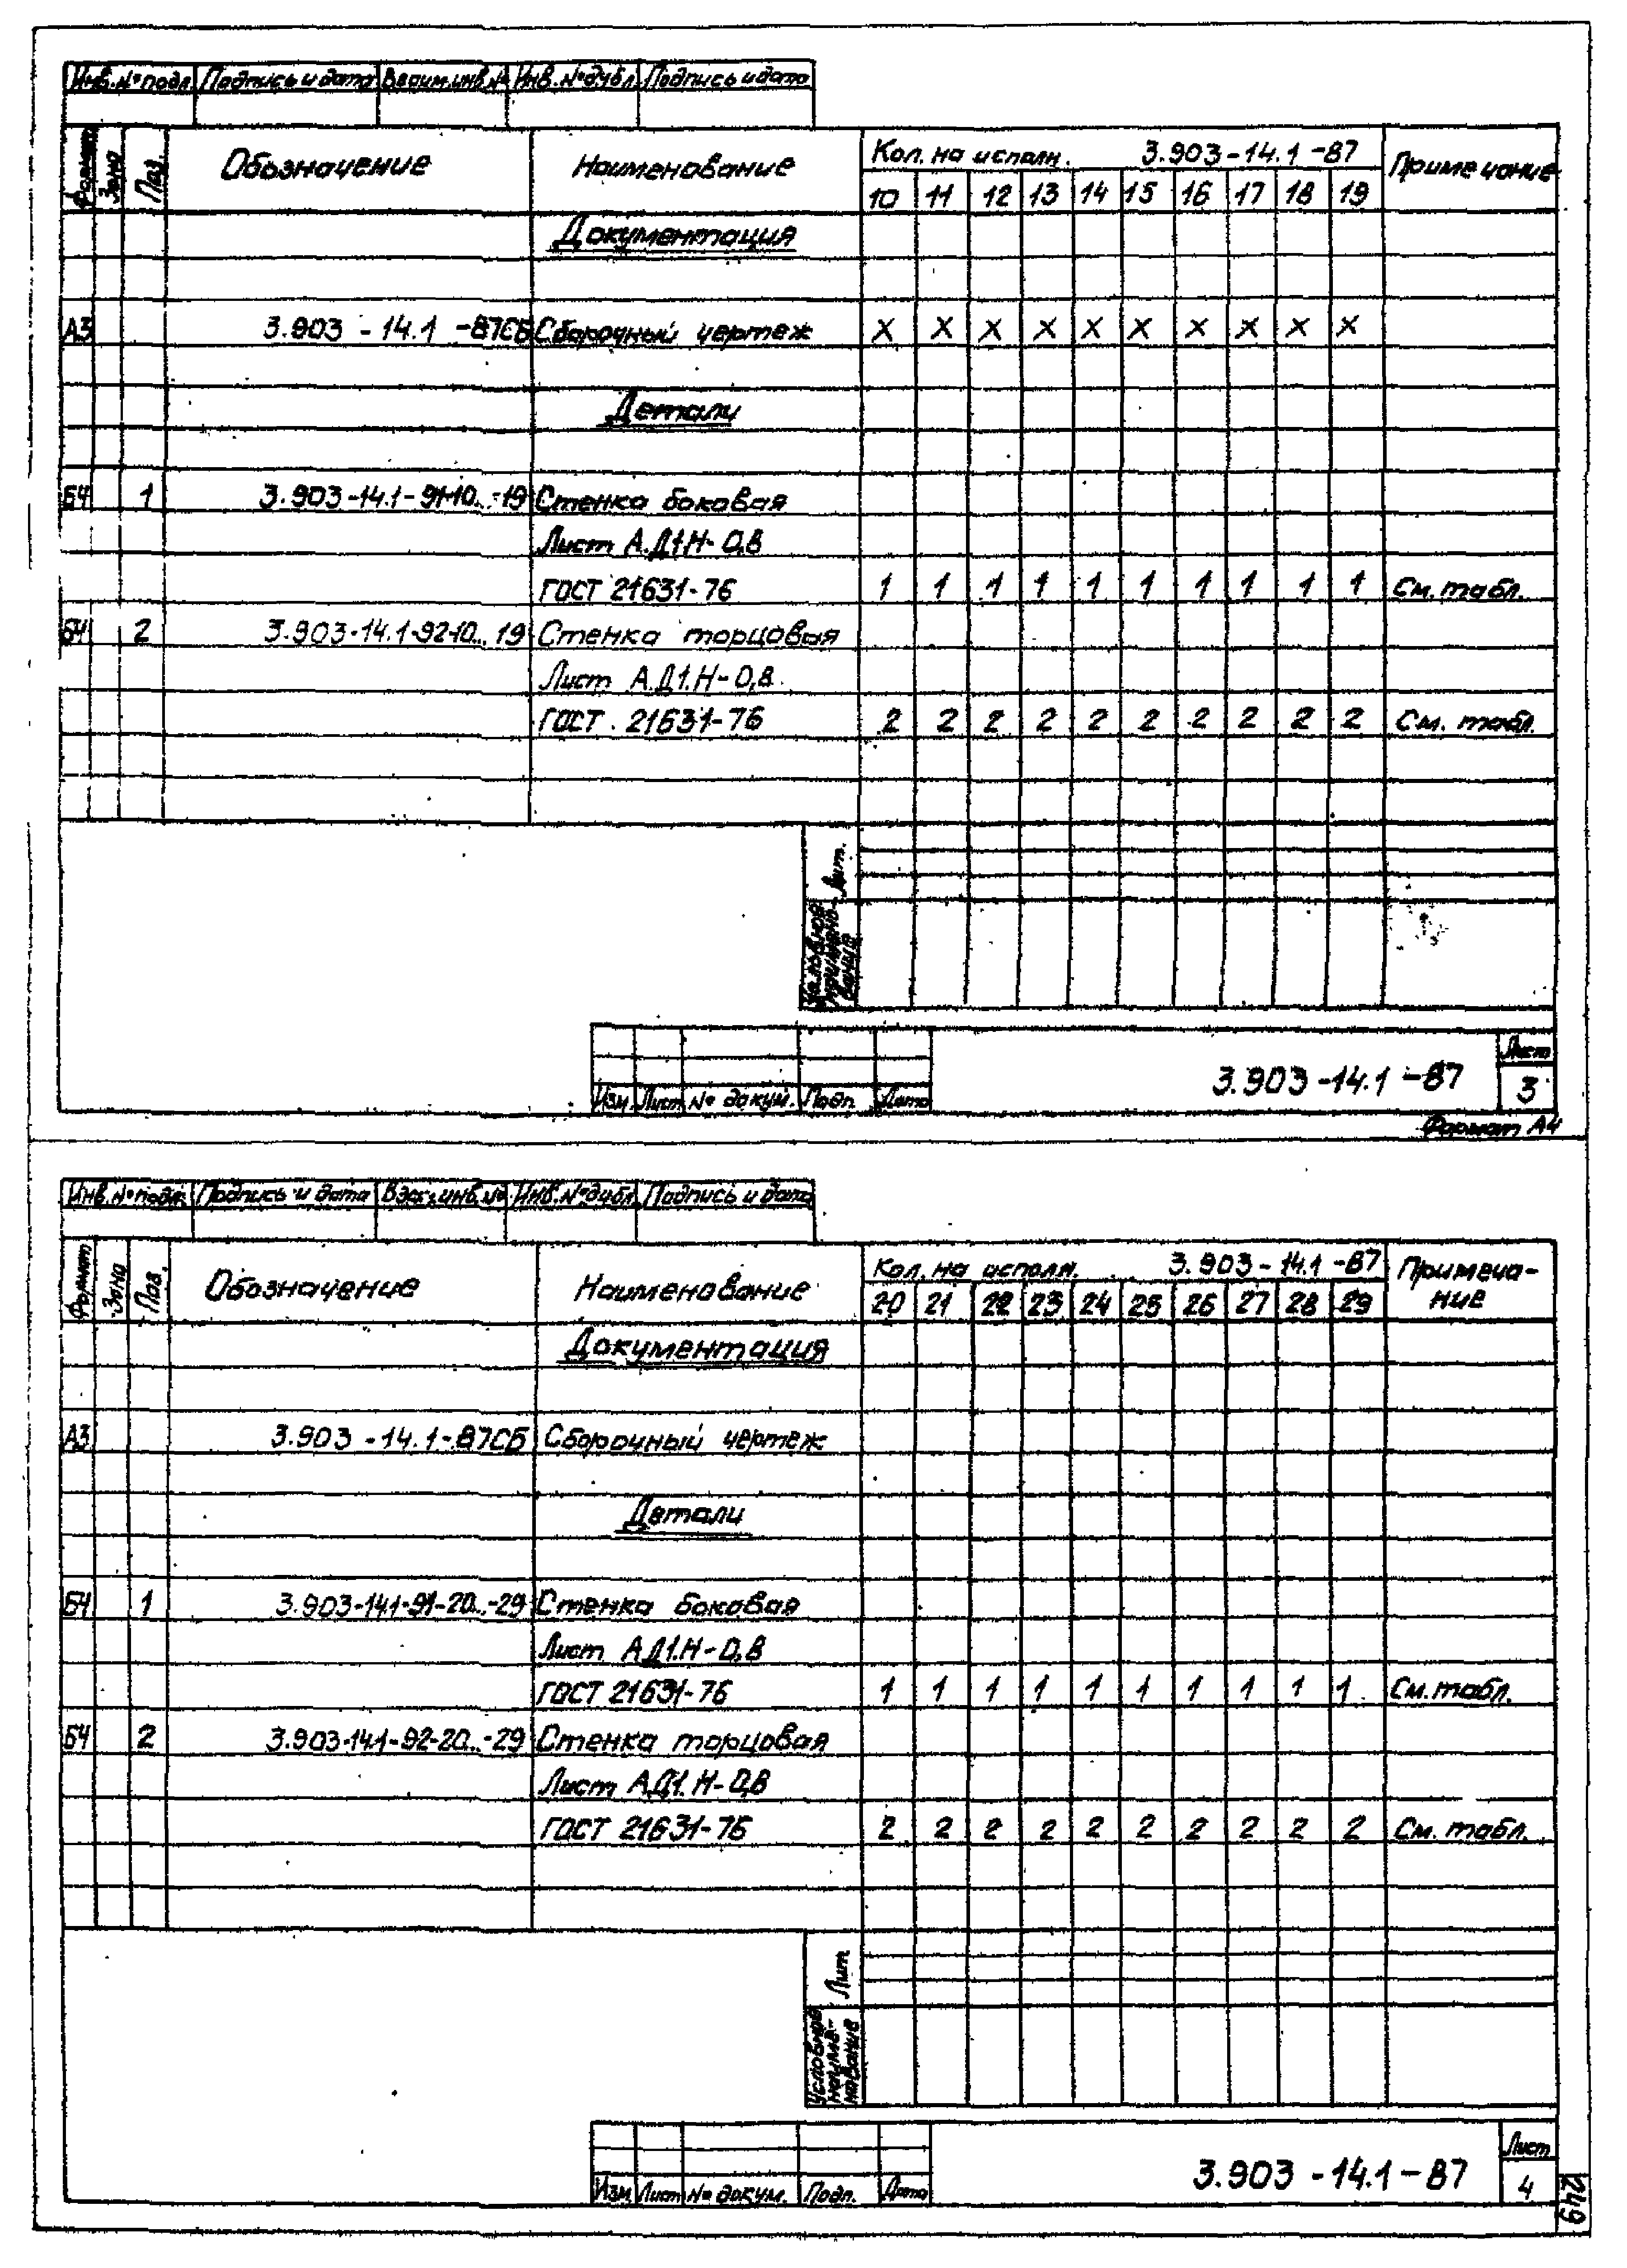 Инв.№подл. Подпись и дата Взаим.инв.№ Инв.№дубл. Подпись и дата
Формат Зона Поз. Обозначение Наименование Кол. на исполн. 3.903-14.1-87 Примечание
10 11 12 13 14 15 16 17 18 19
Документация
А3 3.903-14.1-87СБ Сборочный чертеж X X X X X X X X X X
Детали
Б4 1 3.903-14.1-91-10...-19 Стенка боковая
Лист А.Д1.Н-0,8
ГОСТ 21631-76 1 1 1 1 1 1 1 1 1 1 См. табл.
Б4 2 3.903-14.1-92-10...19 Стенка торцовая
Лист А.Д1.Н-0,8
ГОСТ 21631-76 2 2 2 2 2 2 2 2 2 2 См. табл.
Лит.
Условное наимено-вание
3.903-14.1-87 Лист
Изм. Лист № докум. Подп. Дата 3
Формат А4
Инв.№подл. Подпись и дата Взам.инв.№ Инв.№дубл. Подпись и дата
Формат Зона Поз. Обозначение Наименование Кол. на исполн. 3.903-14.1-87 Примеча-
ние
20 21 22 23 24 25 26 27 28 29
Документация
А3 3.903-14.1-87СБ Сборочный чертеж
Детали
Б4 1 3.903-14.1-91-20...-29 Стенка боковая
Лист АД1.Н-0,8
ГОСТ 21631-76 1 1 1 1 1 1 1 1 1 1 См. табл.
Б4 2 3.903-14.1-92-20...-29 Стенка торцовая
Лист АД1.Н-0,8
ГОСТ 21631-76 2 2 2 2 2 2 2 2 2 2 См. табл.
Лит
Условное наиме-нование
3.903-14.1-87 Лист
Изм. Лист № докум. Подп. Дата 4
249